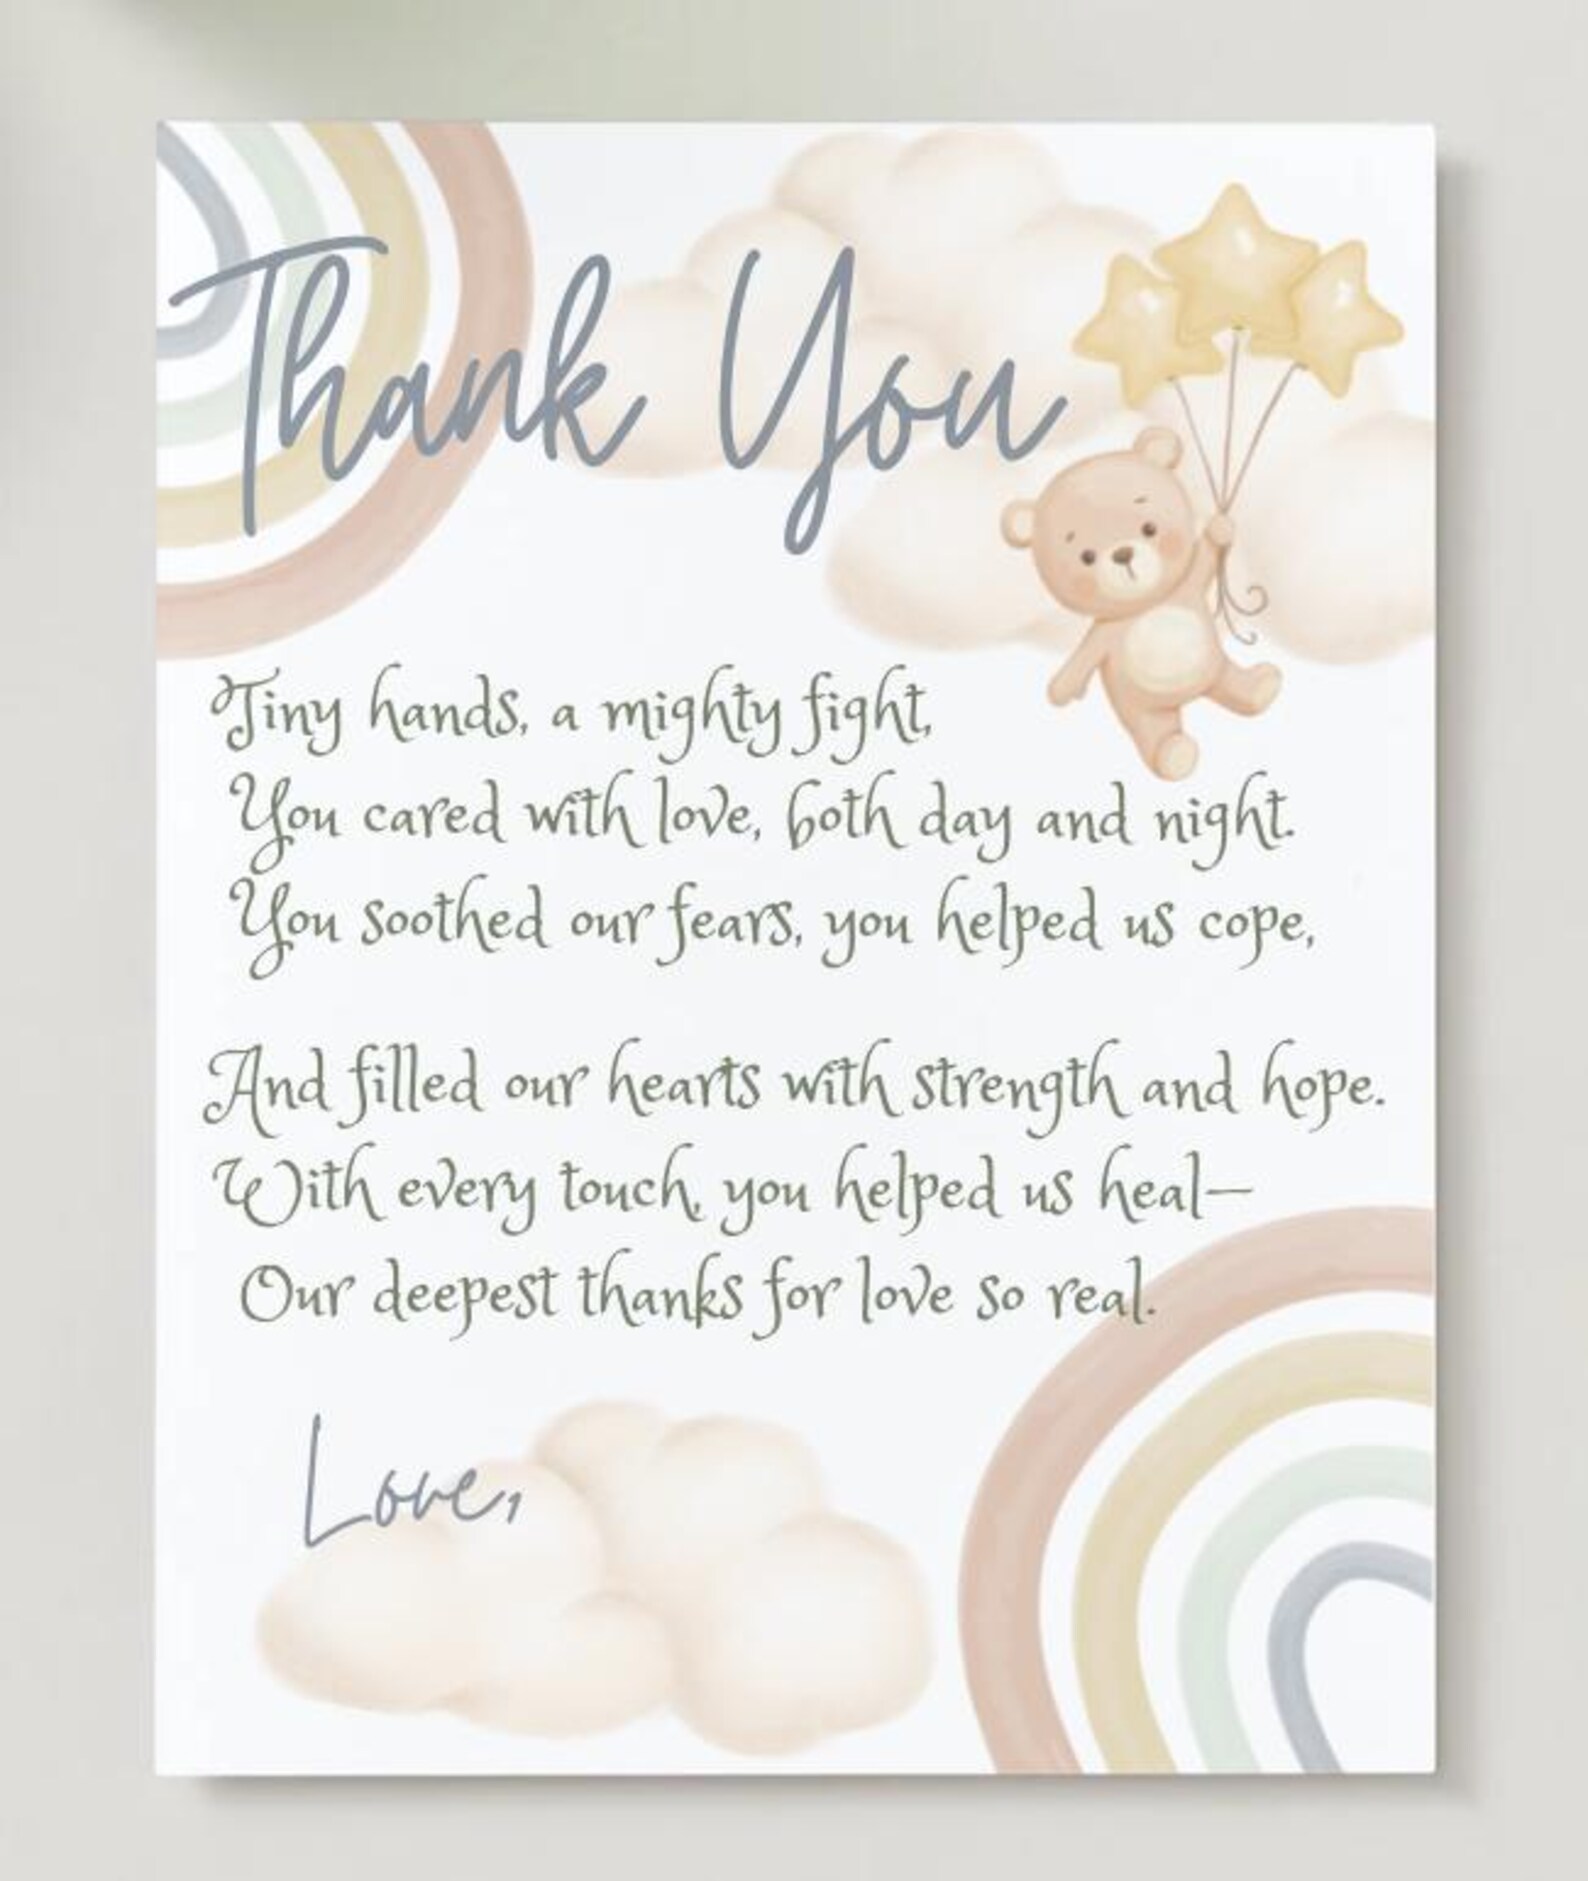 Thank You
Tiny hands, a mighty fight,
You cared with love, both day and night.
You soothed our fears, you helped us cope,
And filled our hearts with strength and hope.
With every touch, you helped us heal—
Our deepest thanks for love so real.
Love,